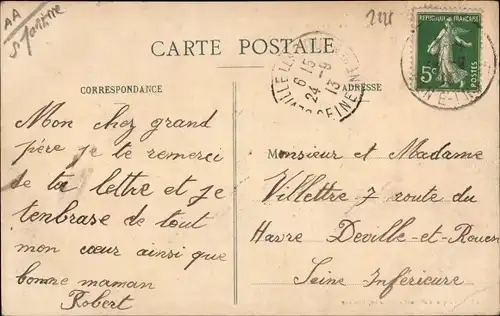 AA
CARTE POSTALE
REPUBLIQUE FRANÇAISE
5c
POSTES
6 15
24 - 9
13
CORRESPONDANCE
ADRESSE
Mon cher grand
père je te remerci
de ta lettre et je
tenbrase de tout
mon cœur ainsi que
bonne maman
Robert
Monsieur et Madame
Villettre 7 route du
Havre Deville-et-Rouen
Seine Inférieure